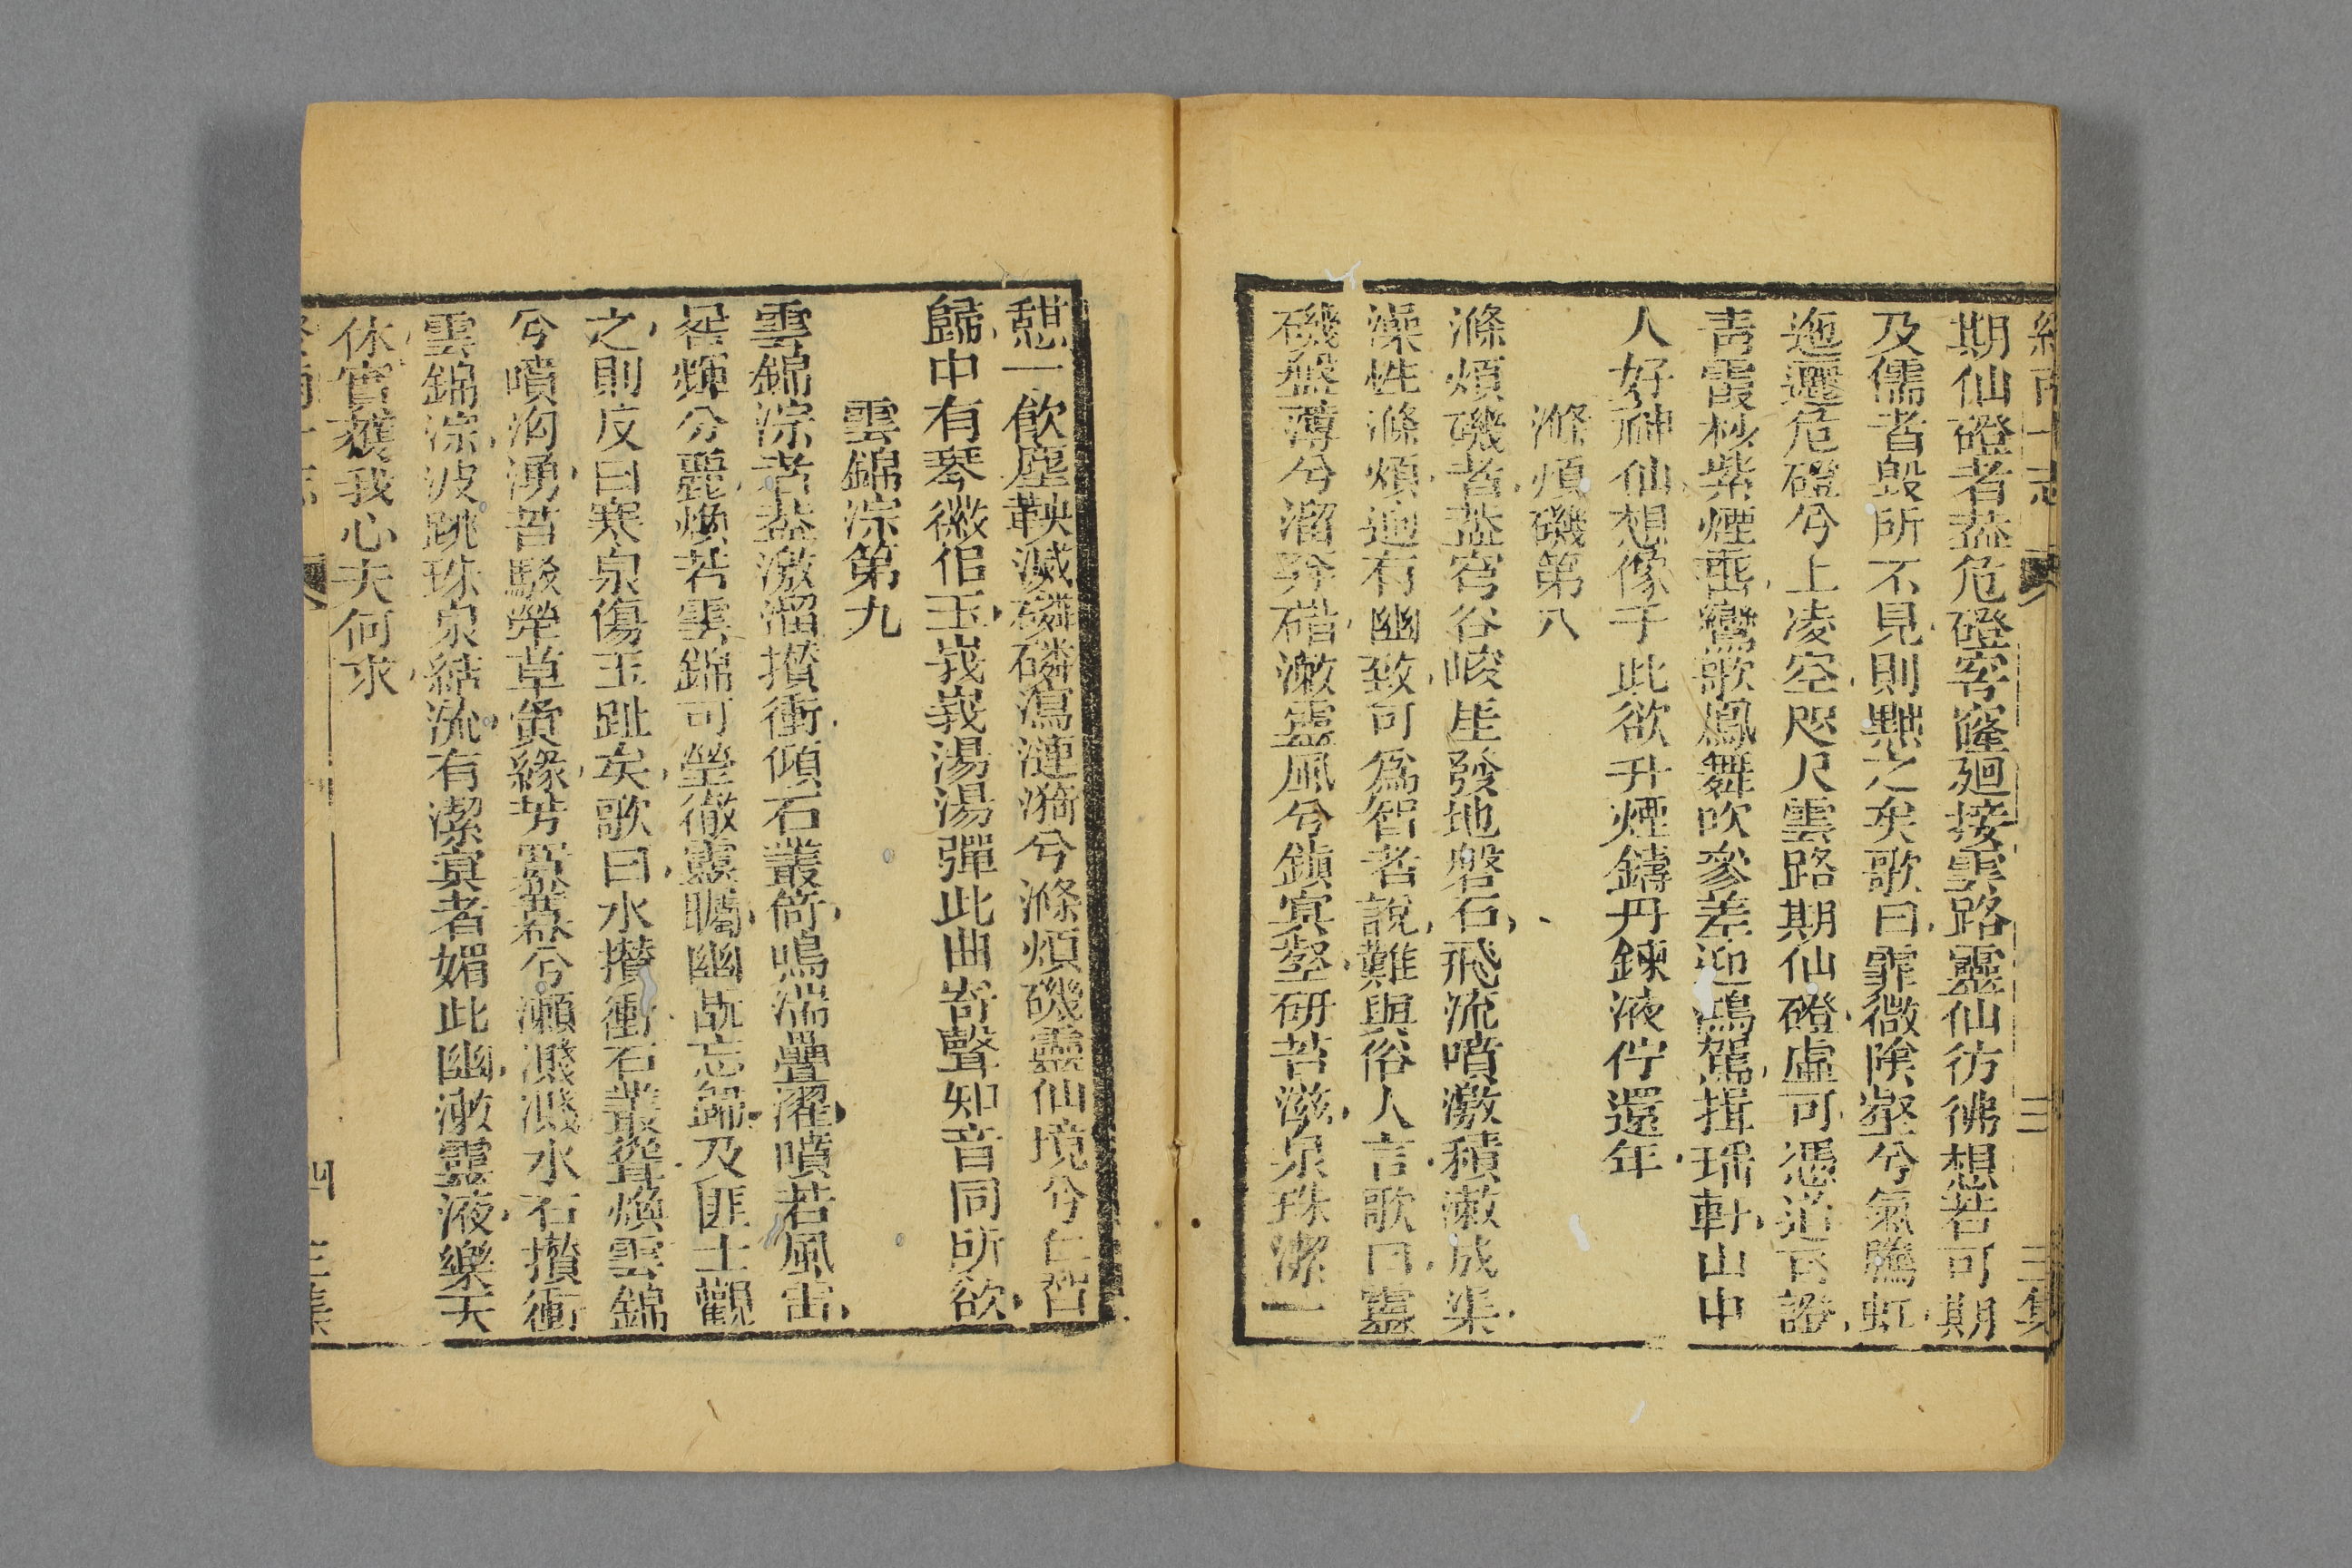 期仙磴者葢危磴穹窿廻接雲路靈仙彷彿想若可期
及儒者毁所不見則黜之矣歌曰霏微陰壑兮氣騰虹
迤邐危磴兮上凌空咫尺雲路期仙磴虛可憑道可證
青霞杪紫煙垂鸞歌鳳舞吹參差迎鴻駕揖瑤軒山中
人好神仙想像于此欲升煙鑄丹鍊液佇還年
滌煩磯第八
滌煩磯者葢窮谷峻崖發地磐石飛流噴激積漱成渠
澡性滌煩迥有幽致可爲智者說難與俗人言歌曰靈
磯盤薄兮溜奔碏漱靈風兮鎮寘壑研苔滋泉珠潔一
憇一飲塵鞅滅磷磷瀉漣漪兮滌煩磯靈仙境兮仁智
歸中有琴徽佀玉峩峩湯湯彈此曲寄聲知音同所欲
雲錦淙第九
雲錦淙者葢激溜攅衝傾石叢倚鳴湍疊濯噴若風雷
詟輝分麗煥若雲錦可瑩徹靈矚幽翫忘歸及匪士觀
之則反曰寒泉傷玉趾矣歌曰水攅衝石叢聳煥雲錦
兮噴洶湧苔駮犖草夤緣芳羃羃兮瀨濺濺水石攅衝
雲錦淙波跳珠泉結流有潔寘者媚此幽漱靈液樂天
休實獲我心夫何求
四 三集